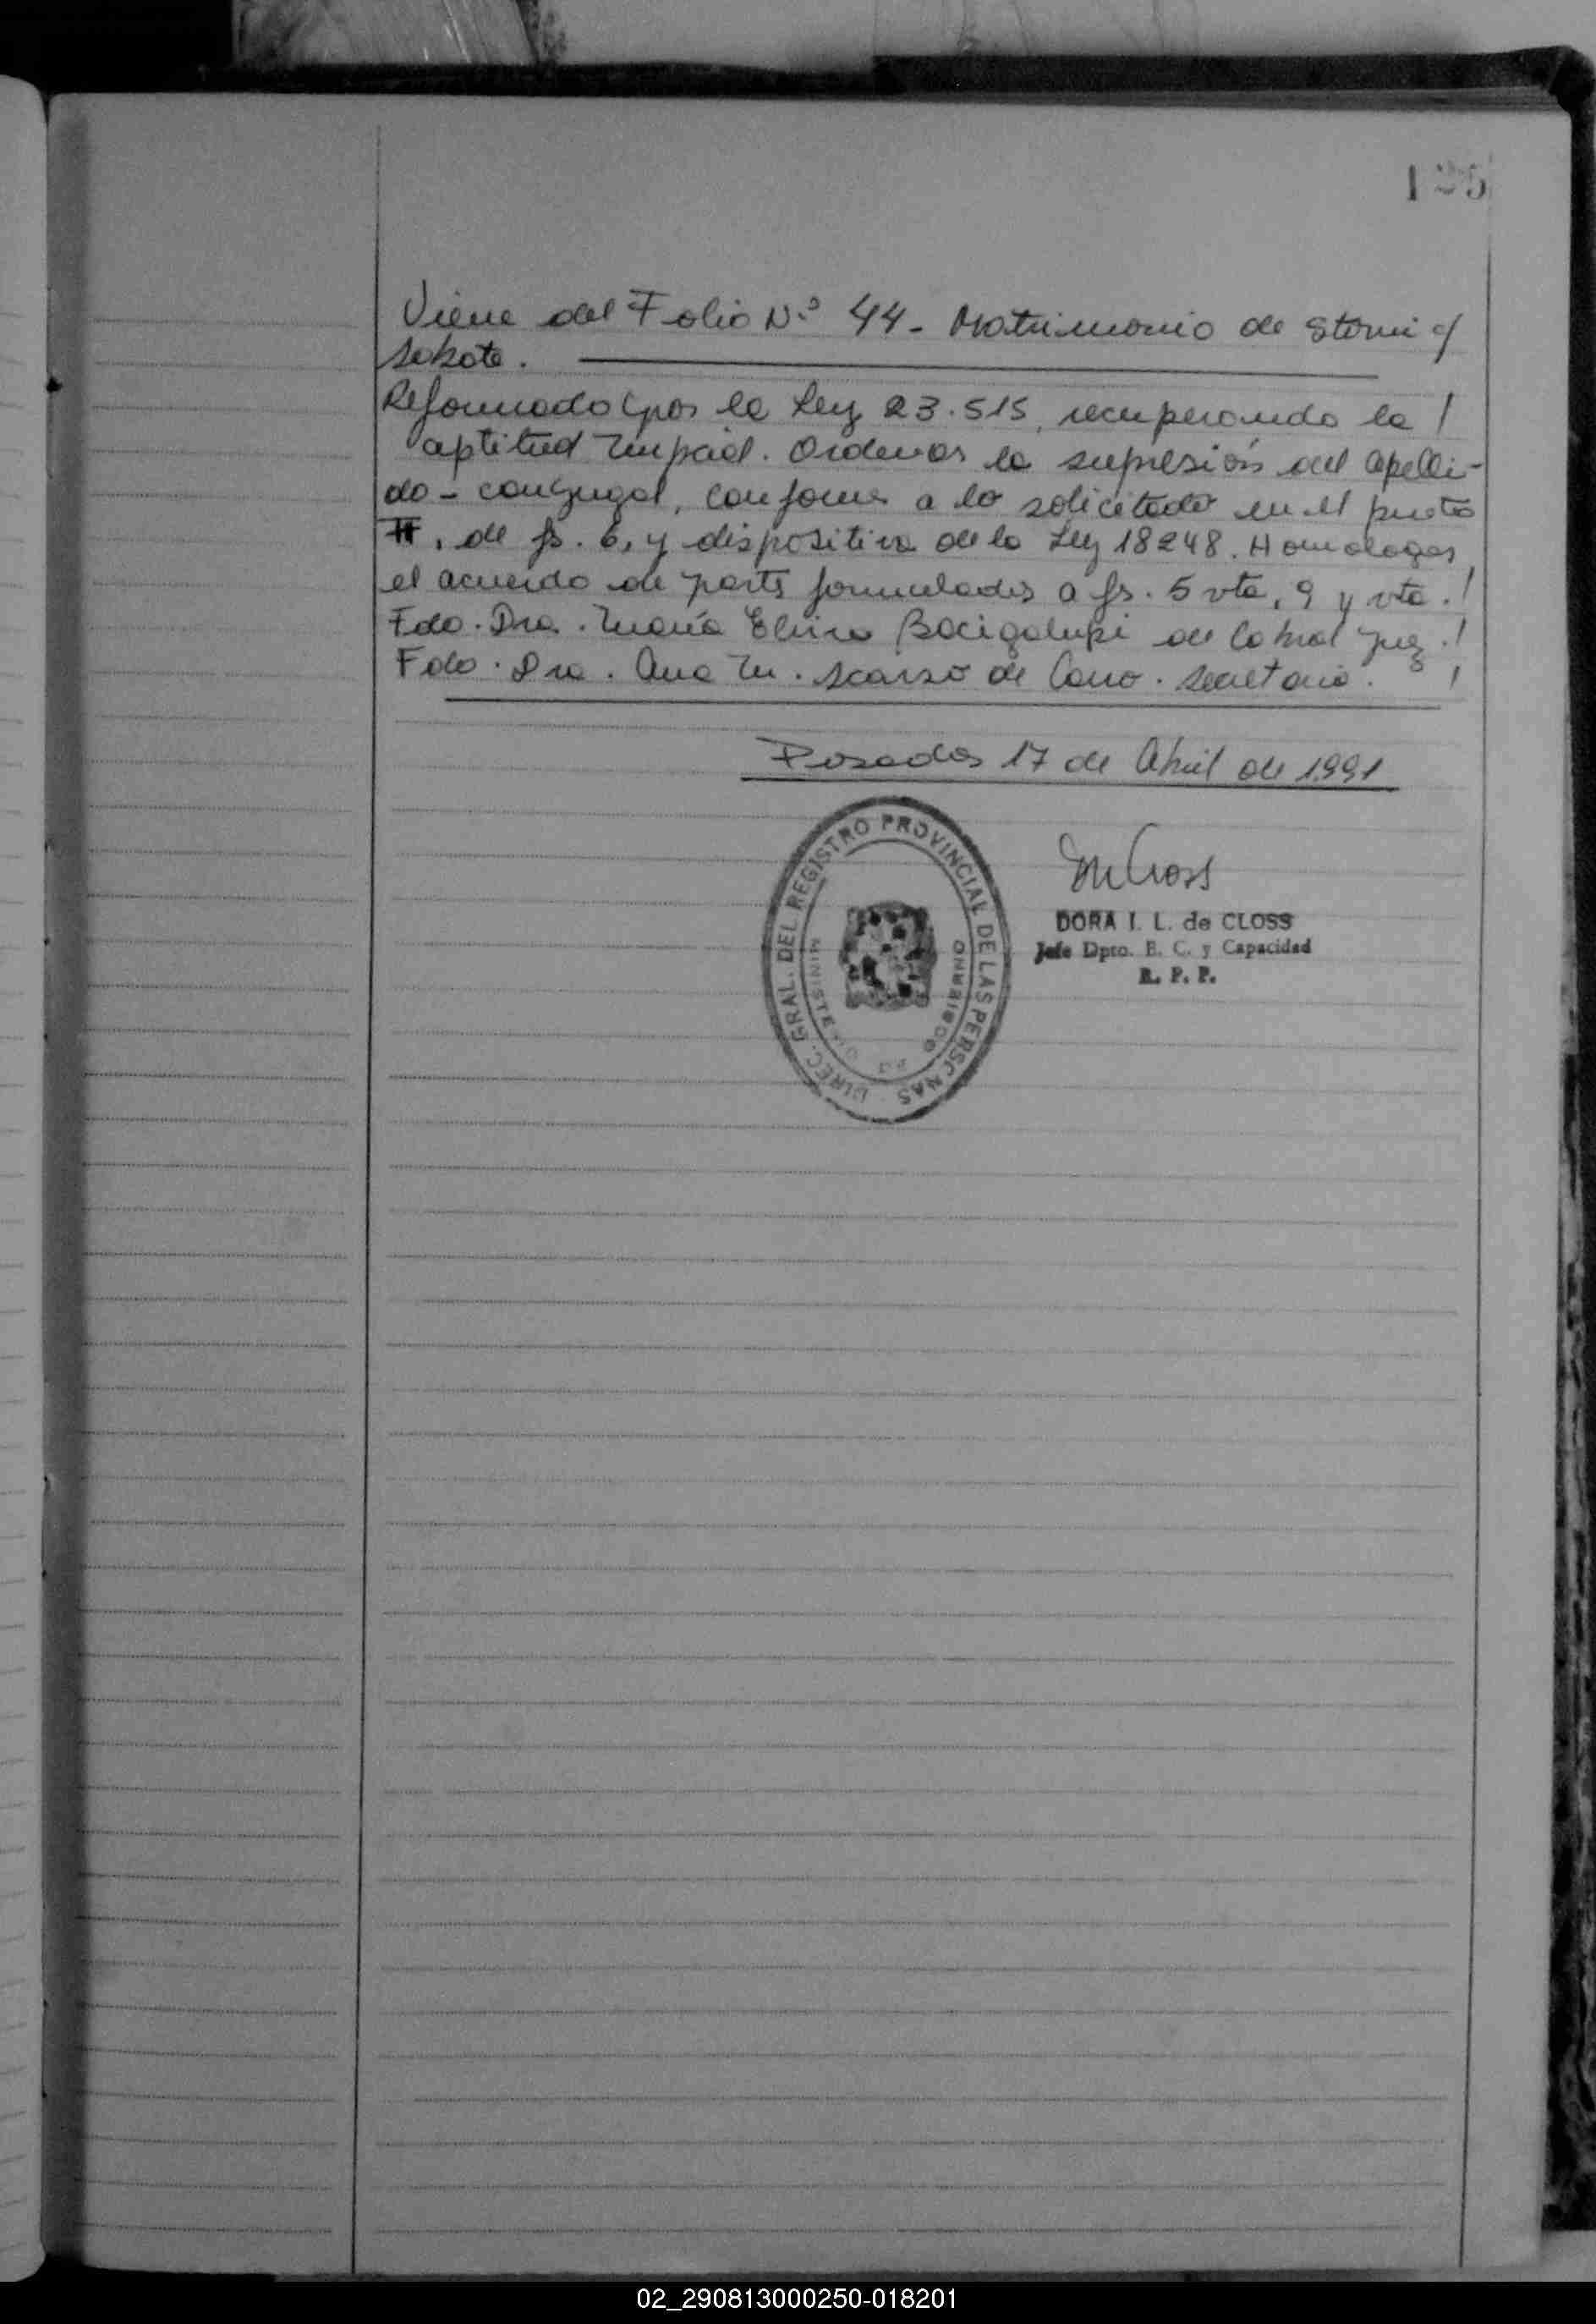 125
Viene del Folio N.º 44 - Matrimonio de Storni c/
Sokote.
Reformado (por la Ley 23.515, recuperando la /
aptitud Nupcial. Ordenar la supresión del Apelli-
do - conyugal, conforme a lo solicitado en el punto
II, de fs. 6, y dispositiva de la Ley 18248. Homologar
el acuerdo de parts formulados a fs. 5 vta, 9 y vta. /
Fdo. Dra. María Elvira Bacigalupi de Cabral Juez. /
Fdo. Dra. Ana M. Scarso de Cano. Secretaria. /
Posadas 17 de Abril de 1991
DIREC. GRAL. DEL REGISTRO PROVINCIAL DE LAS PERSONAS
GOBIERNO
DORA I. L. de CLOSS
Jefe Dpto. E. C. y Capacidad
R. P. P.
02_290813000250-018201